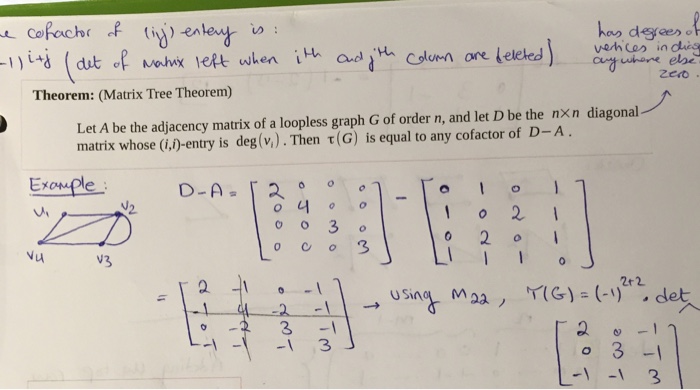 e cofactor of (i,j) entry is :
-1)^(i+j) (det of matrix left when ith and jth column are deleted)
has degrees of
vertices in diag
anywhere else
zero.
Theorem: (Matrix Tree Theorem)
Let A be the adjacency matrix of a loopless graph G of order n, and let D be the n×n diagonal
matrix whose (i,i)-entry is deg(vᵢ). Then τ(G) is equal to any cofactor of D−A.
Example:
v1 v2
v4 v3
D-A = [2 0 0 0] - [0 1 0 1]
[0 4 0 0] [1 0 2 1]
[0 0 3 0] [0 2 0 1]
[0 0 0 3] [1 1 1 0]
= [2 -1 0 -1] → using M22, τ(G) = (-1)^(2+2) . det
[-1 4 -2 -1]
[0 -2 3 -1]
[-1 -1 -1 3]
[2 0 -1]
[0 3 -1]
[-1 -1 3]